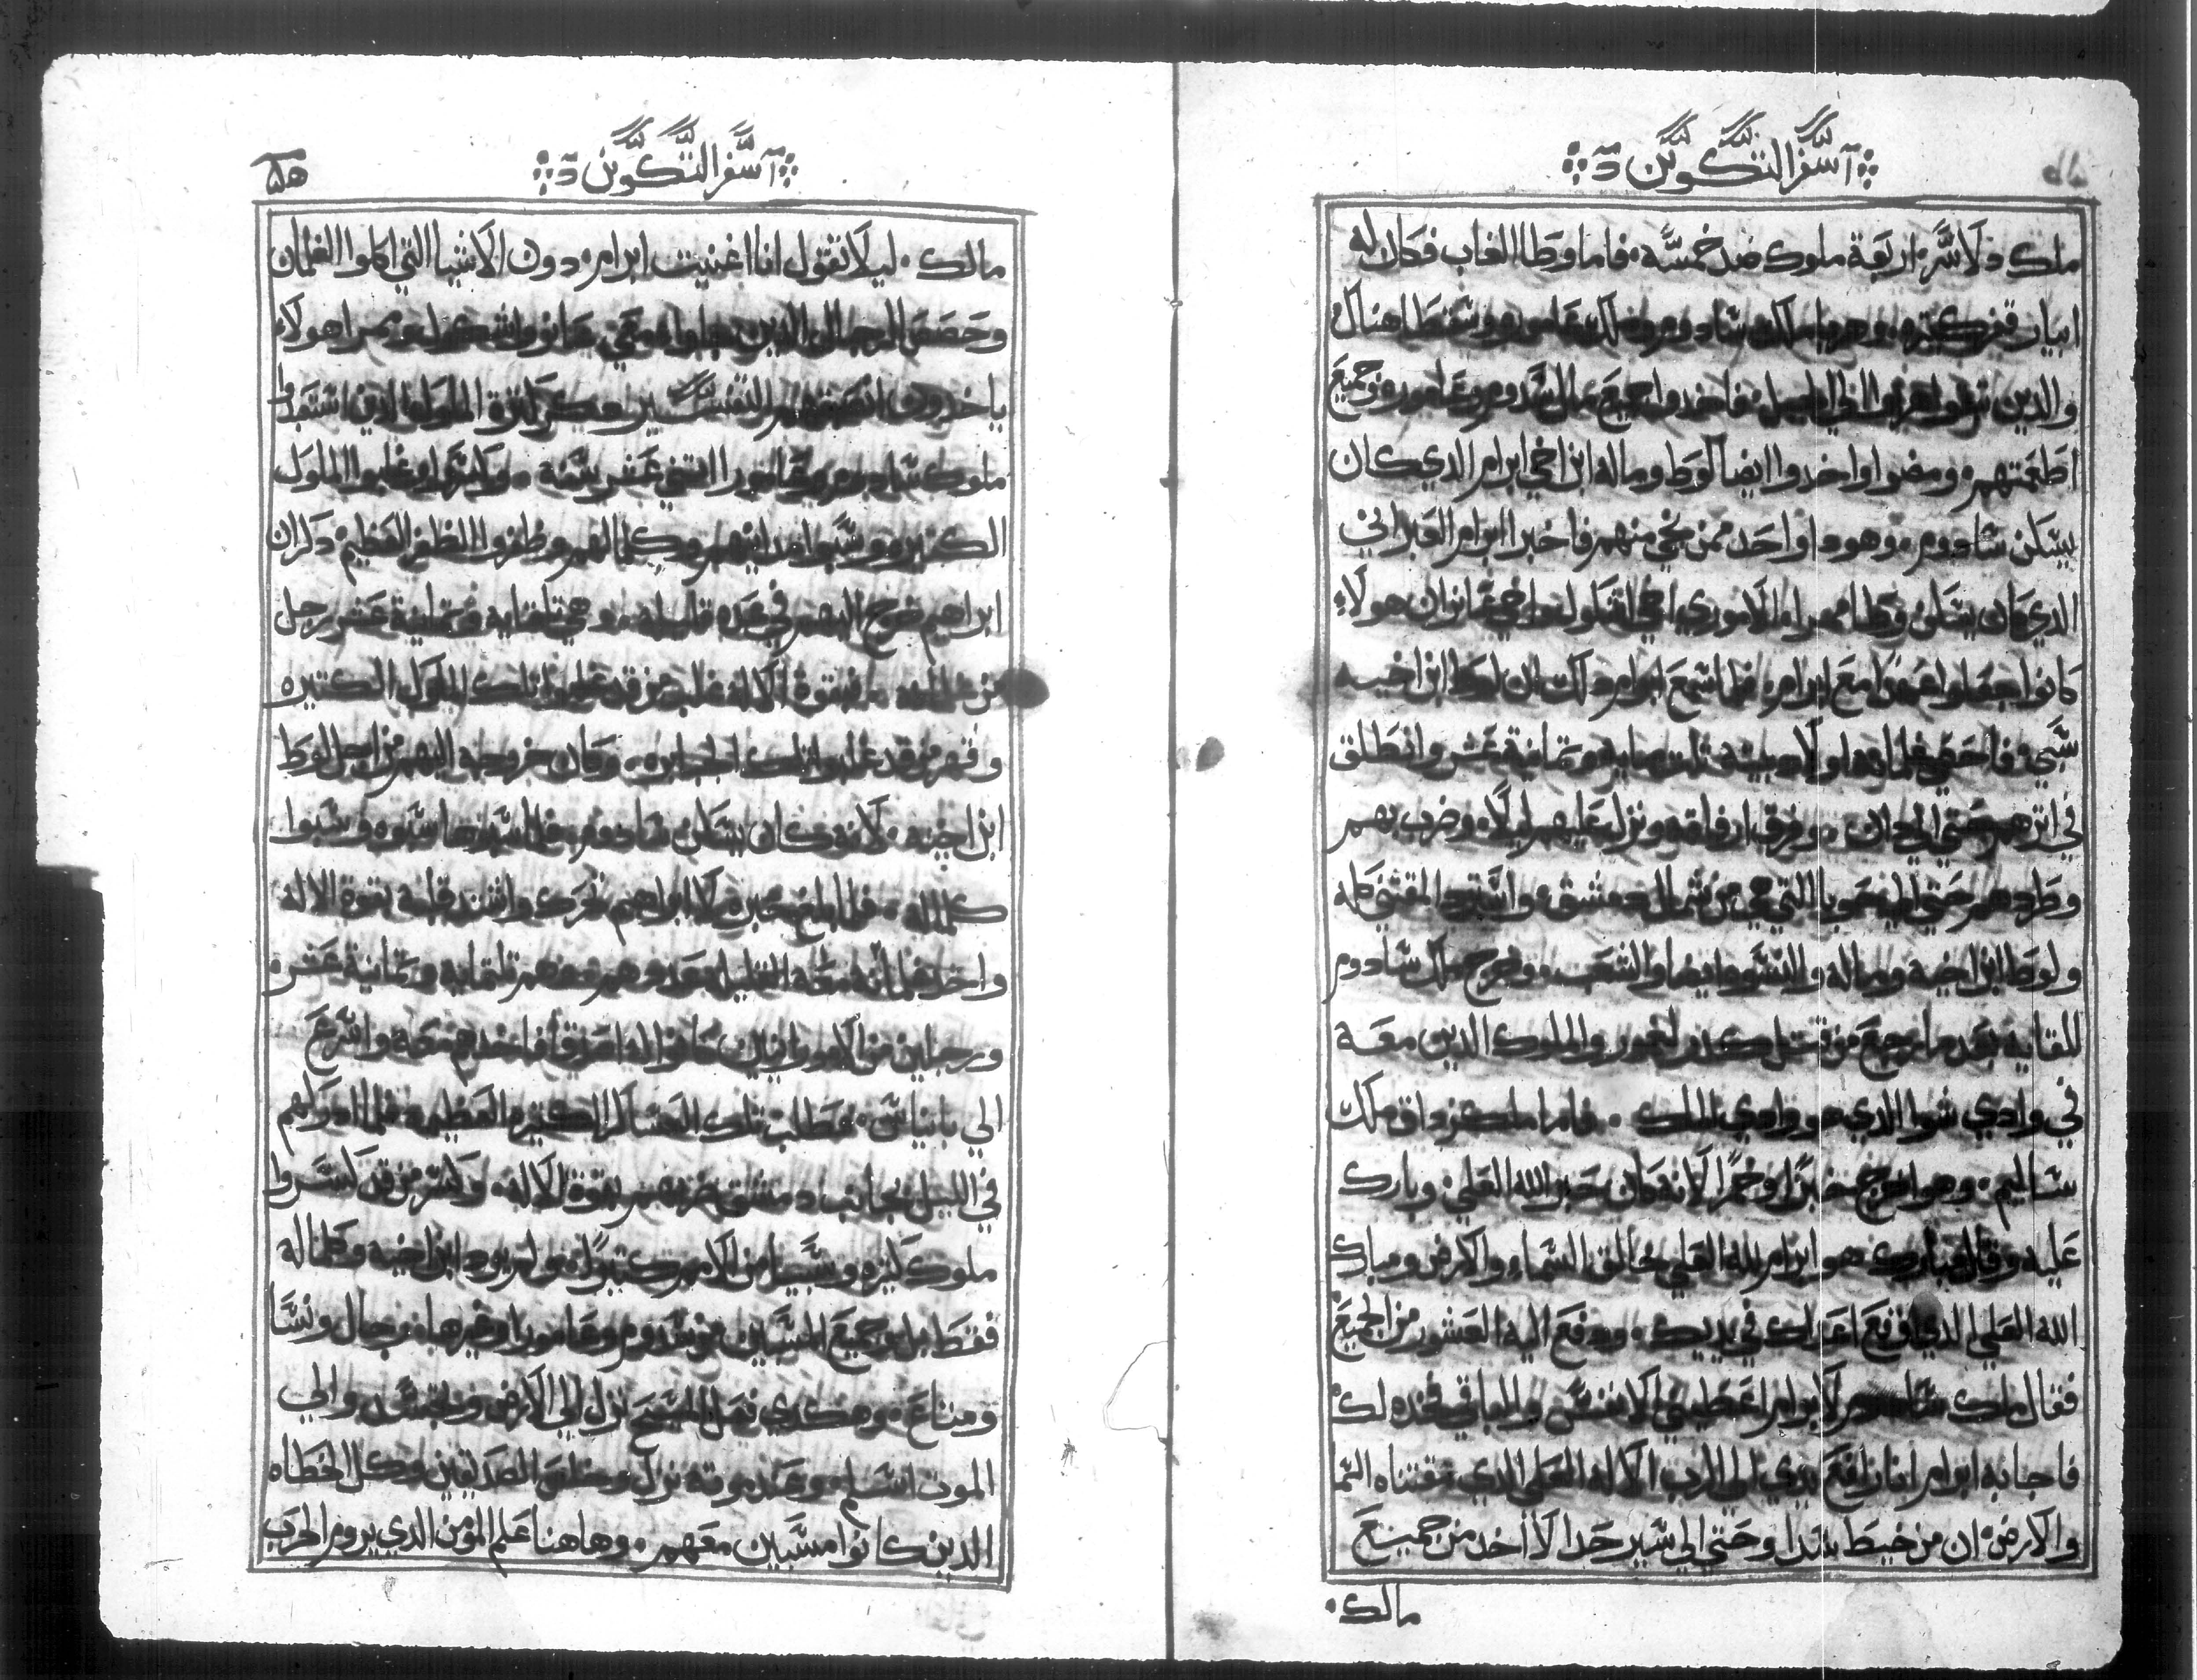 اسفر التكوين
ملك دلاسر اربعة ملوك ضد خمسه فاما وطا الغاب فكان له
ابيار قفر كتيره وهربا ملك سادوم وملك عاموره وسقطا هناك
والدين نجوا هربوا الي الجبل فاخدوا جميع مال سدوم وعاموره وجميع
اطعمتهم ومضوا واخدوا ايضا لوط وماله ابن اخي ابرام الدي كان
يسكن سادوم وهودا واحد ممن نجي منهم فاخبر ابرام العبراني
الدي كان يسكن وطا ممرا الاموري اخي اشكول واخي عانر ان هولاء
كانوا جعلوا عهدا مع ابرام فلما سمع ابرام دلك ان لوط ابن اخيه
سبي فاحصي غلمانه اولاد بيته ثلث مايه وتمانية عشر وانطلق
في اترهم حتي الي دان وفرق ارفاقه ونزل عليهم ليلا وضرب بهم
وطردهم حتي الي حوبا التي هي من شمال دمشق واسترد المقتني كله
ولوط ابن اخيه وماله والنسوه ايضا والشعب وخرج ملك سادوم
للقايه بعد ما رجع من قتل كدرلعمور والملوك الدين معه
في وادي شوا الدي هو وادي الملك فاما ملكزداق ملك
ساليم وهو اخرج خبزا وخمرا لانه كان حبر الله العلي وبارك
عليه وقال مبارك هو ابرام لله العلي خالق السماء والارض ومبارك
الله العلي الدي دفع اعداك في يديك ودفع اليه العشور من الجميع
فقال ملك سادوم لابرام اعطيني الانفس والباقي خده لك
فاجابه ابرام انا رافع يدي الي الرب الاله العلي الدي مقتناه السما
والارض ان من خيط سدا وحتي الي سير حدا لا اخد من جميع
مالك
اسفر التكوين
مالك ليلا تقول انا اغنيت ابرام دون الاشيا التي اكلوا الغلمان
وحصص الرجال الدين جاوا معي عانر واشكول وممرا هولاء
ياخدون انصبتهم التفسير وكسرة الملوك الدين استعبدوا
ملوك سادوم وعامورا اتني عشر سنه ولانهم غلبوا الملوك
الكتيره وسبوا مداينهم وكلمالهم وظفروا الظفر العظيم دكر ان
ابراهيم خرج اليهم في عده قليله وهي تلتمايه وتمانية عشر رجل
من غلمانه فبقوة الاله غلب من قد غلبوا تلك الملوك الكتيره
وقهر من قد غلبوا تلك الجبابره وكان خروجه اليهم من اجل لوط
ابن اخيه لانه كان يسكن سادوم فلما سبوها سبوه وسبوا
كلماله فلما بلغ خبره لابراهيم تحرك واشتد قلبه بقوة الاله
واخد غلمانه معه القليل عددهم وهم تلتمايه وتمانية عشر
ورجلين من الاموراнيين كانوا له اصدقا فاخدهم معه واسرع
الي بانياس فطلب تلك العساكر الكتيره العظيمه فلما ادركهم
في الليل بجانب دمشق ضربهم بقوة الاله وكسر من قد كسروا
ملوك كتيره وسبيا من الامم كتيرا ولم يرد ابن اخيه وكلماله
فقط بل وجميع المسبيين من سدوم وعامورا وغيرها رجال ونسا
ومتاع وهكدي فعل المسيح نزل الي الارض وتجسد والي
الموت اسلم وعند موته نزل وخلص الصديقين وكل الخطاه
الدين كانوا مسبيين معهم وهاهنا علم المومن الدي يروم الحرب